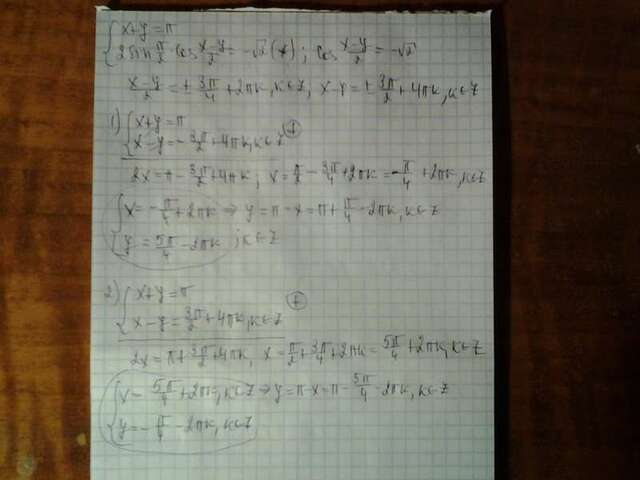 { x+y=π
{ 2sin π/2 cos (x-y)/2 = -√2 (*); cos (x-y)/2 = -√2
(x-y)/2 = ± 3π/4 + 2πk, k∈Z; x-y = ± 3π/2 + 4πk, k∈Z
1) { x+y=π
{ x-y = - 3π/2 + 4πk, k∈Z (+)
2x = π - 3π/2 + 4πk; x = π/2 - 3π/4 + 2πk = - π/4 + 2πk, k∈Z
{ x = - π/4 + 2πk ⇒ y = π-x = π + π/4 - 2πk, k∈Z
{ y = 5π/4 - 2πk; k∈Z
2) { x+y=π
{ x-y = 3π/2 + 4πk, k∈Z (+)
2x = π + 3π/2 + 4πk, x = π/2 + 3π/4 + 2πk = 5π/4 + 2πk, k∈Z
{ x = 5π/4 + 2π, k∈Z ⇒ y = π-x = π - 5π/4 - 2πk, k∈Z
{ y = - π/4 - 2πk, k∈Z